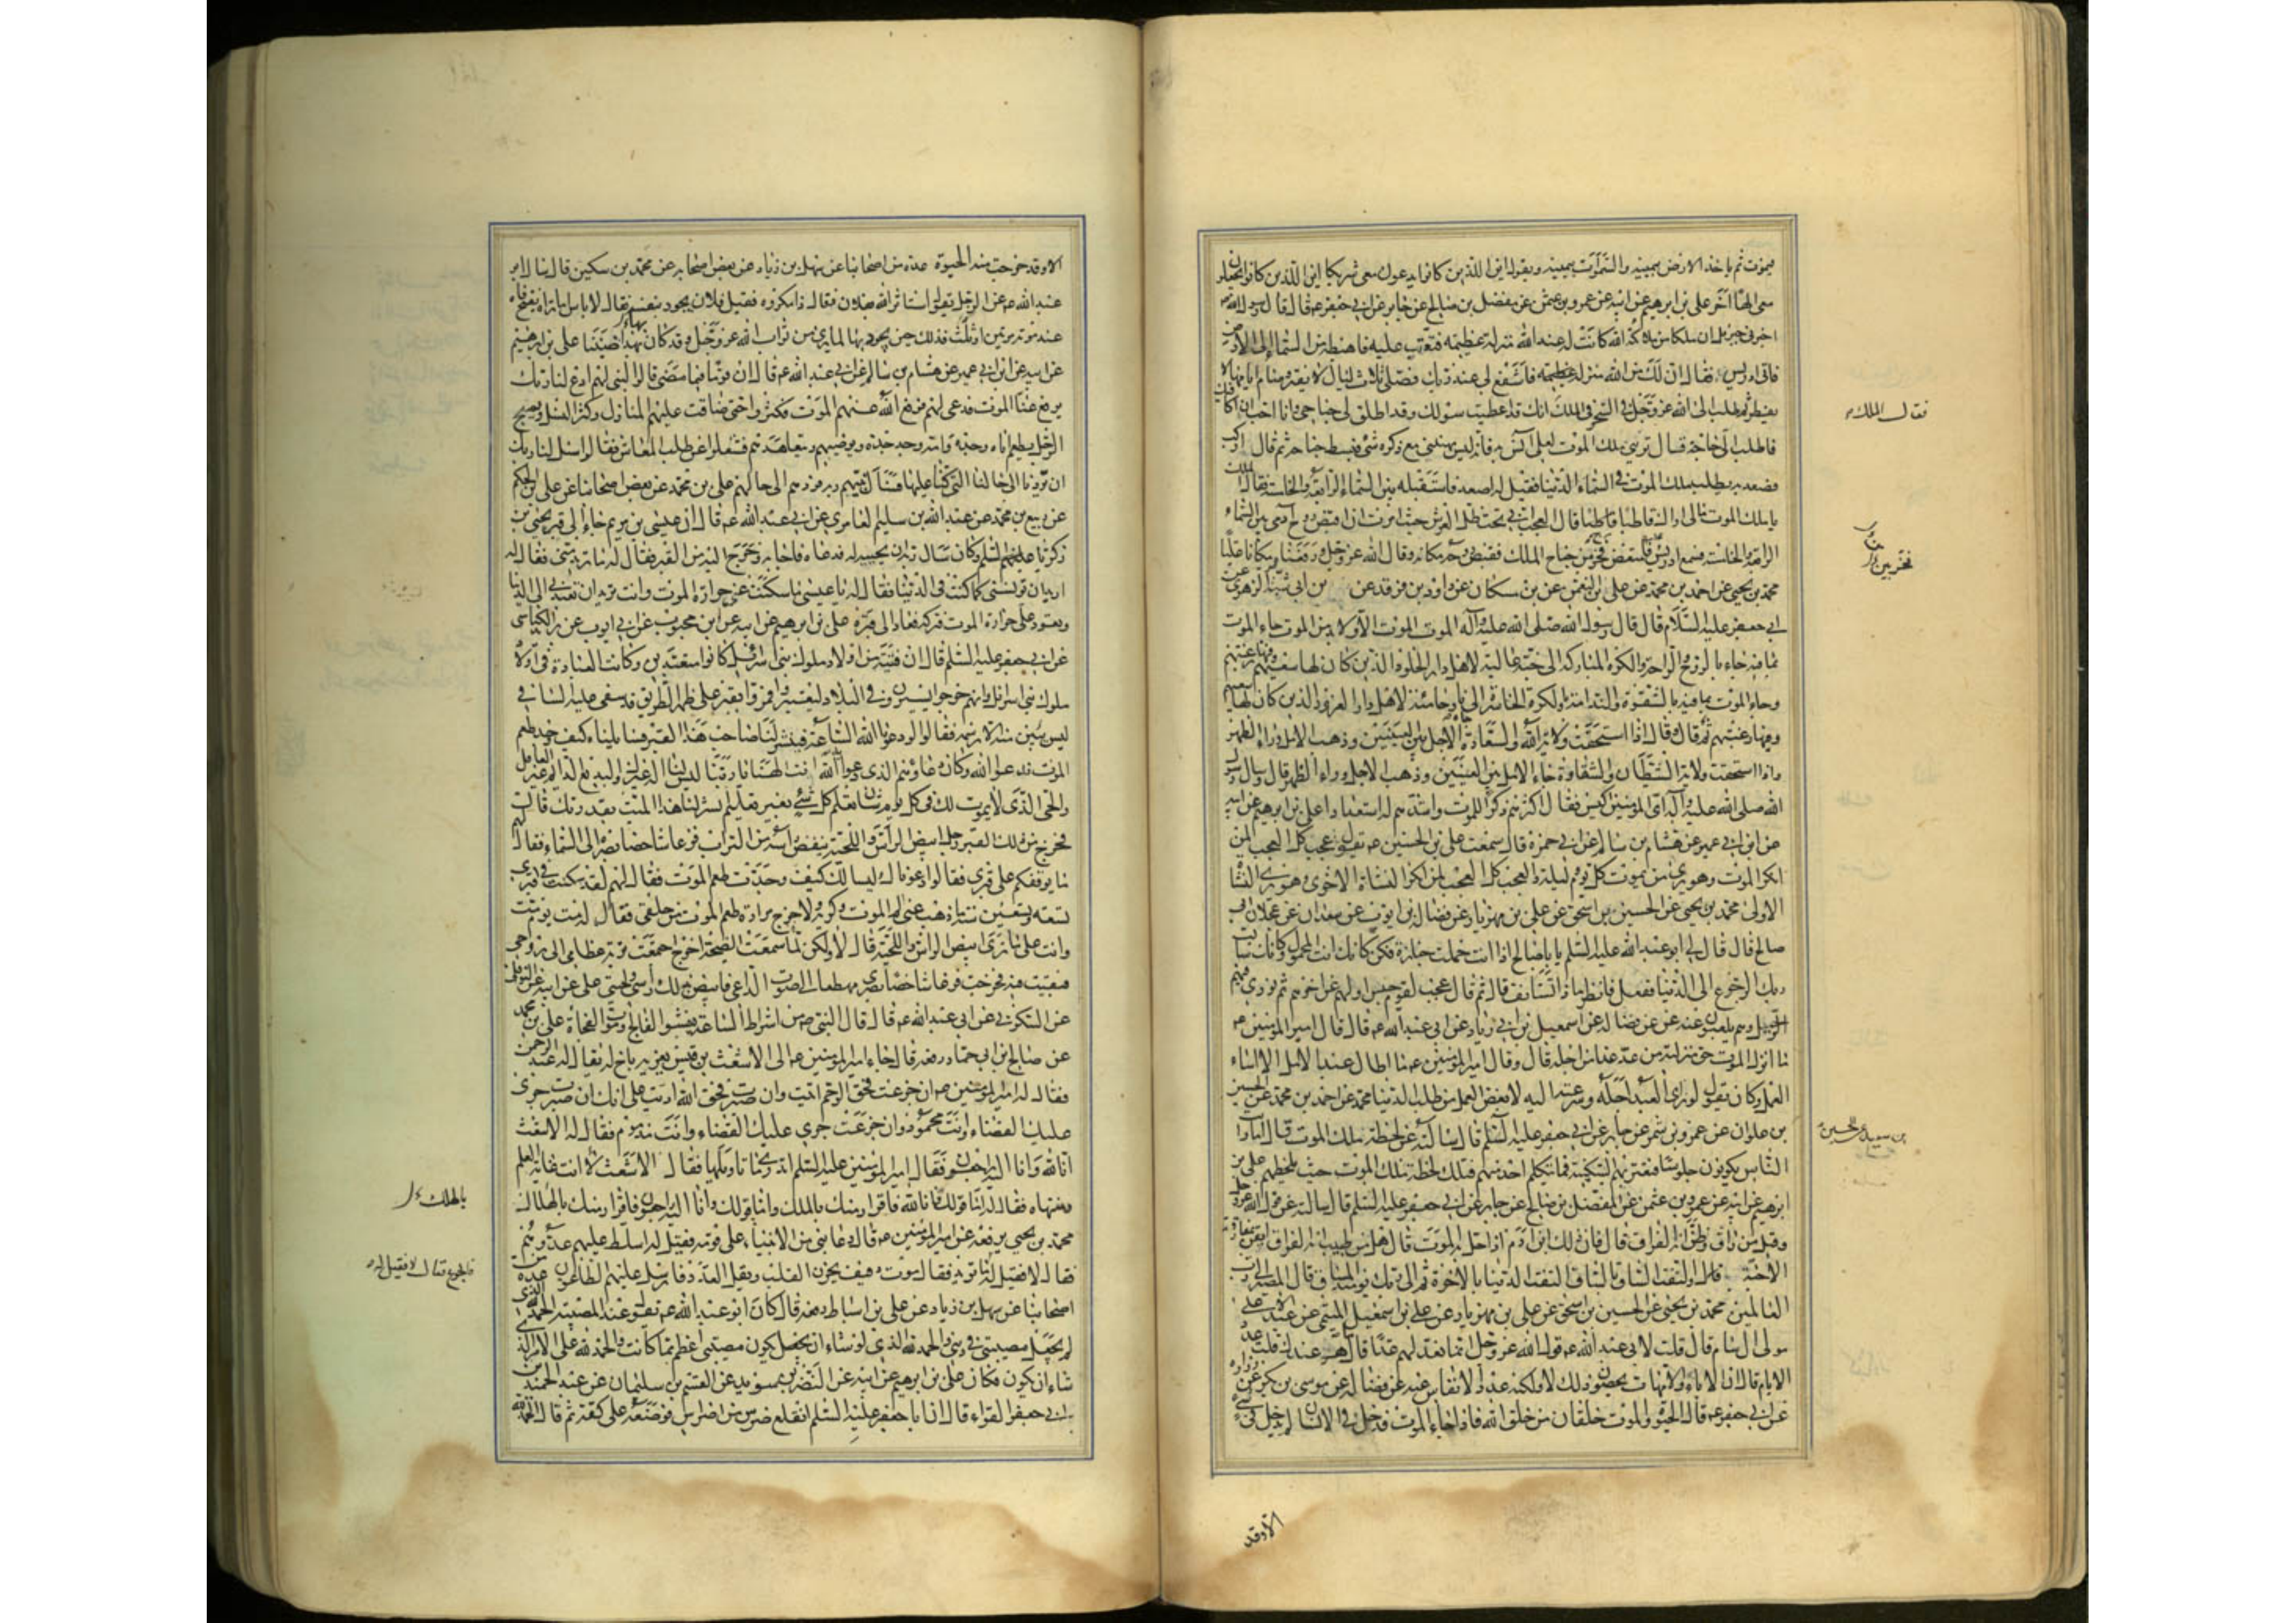 فيموت ثم ياخذ الارض بيمينه والسموات بيمينه ويقول اين الذين كانوا يدعون معي شريكا اين الذين كانوا يجعلون
معي الها آخر علي بن ابرهيم عن ابيه عن عمرو بن عثمن عن مفضل بن صالح عن جابر عن ابي جعفر عه قال قال رسول الله ص
اخبرني جبرئيل ان ملكا من ملائكة الله كانت له عند الله منزلة عظيمة فتعتب عليه فاهبطه من السما الى الارض
فاتى ادريس فقال ان لك من الله منزلة عظيمة فاشفع لي عند ربك فصلى ثلاث ليال لا يفتر وصام ايامها لا
يفطر ثم طلب الى الله عز وجل في السحر في الملك انك قد اعطيت سؤلك وقد اطلق لي جناحي وانا احب ان اكافيك
فاطلب الي حاجة فقال تريني ملك الموت لعلي آنس به فانه ليس يهنئني مع ذكره شئ فبسط جناحه ثم قال اركب
فصعد به يطلب ملك الموت في السماء الدنيا فقيل له اصعد فاستقبله بين السماء الرابعة والخامسة فقال الملك
يا ملك الموت مالي اراك قاطبا قال العجب اني تحت ظل العرش حيث امرت ان اقبض روح آدمي بين السماء
الرابعة والخامسة فسمع ادريس فامتعض فخر من جناح الملك فقبض روحه مكانه وقال الله عز وجل ورفعناه مكانا عليا
محمد بن يحيى عن احمد بن محمد عن علي بن النعمن عن بن مسكان عن داود بن فرقد عن بن ابي شيبة الزهري عن
ابي جعفر عليه السلام قال قال رسول الله صلى الله عليه وآله الموت الموت الا ولا بد من الموت جاء الموت
بما فيه جاء بالروح والراحة والكرة المباركة الى جنة عالية لاهل دار الخلود الذين كان لها سعيهم وفيها رغبتهم
وجاء الموت بما فيه بالشقوة والندامة والكرة الخاسرة الى نار حامية لاهل دار الغرور الذين كان لها سعيهم
وفيها رغبتهم ثم قال وقال اذا استحقت ولاية الله والسعادة جاء الاجل بين العينين وذهب الامل وراء الظهر
واذا استحقت ولاية الشيطان والشقاوة جاء الامل بين العينين وذهب الاجل وراء الظهر قال وسئل رسول
الله صلى الله عليه وآله اي المومنين اكيس فقال اكثرهم ذكرا للموت واشدهم له استعدادا علي بن ابرهيم عن ابيه
عن ابن ابي عمير عن هشام بن سالم عن ابي حمزة قال سمعت علي بن الحسين عه يقول عجب كل العجب لمن
انكر الموت وهو يرى من يموت كل يوم وليلة والعجب كل العجب لمن انكر النشاة الاخرى وهو يرى النشاة
الاولى محمد بن يحيى عن الحسين بن اسحق عن علي بن مهزيار عن فضالة بن ايوب عن سعدان عن عجلان ابي
صالح قال قال لي ابو عبد الله عليه السلم يا با صالح اذا انت حملت جنازة فكن كانك انت المحمول وكانك سالت
ربك الرجوع الى الدنيا ففعل فانظر ماذا تستانف قال ثم قال عجب لقوم حبس اولهم عن آخرهم ثم نودي فيهم
الرحيل وهم يلعبون عنه عن فضالة عن اسمعيل بن ابي زياد عن ابي عبد الله عه قال قال امير المومنين عه
ما انزل الموت حق منزلته من عد غدا من اجله قال وقال امير المومنين عه ما اطال عبد الامل الا اساء
العمل وكان يقول لو راى العبد اجله وسرعته اليه لابغض العمل من طلب الدنيا محمد عن احمد بن محمد عن الحسين
بن علوان عن عمرو بن شمر عن جابر عن ابي جعفر عليه السلم قال سالته عن لحظة ملك الموت قال اما رايت
الناس يكونون جلوسا فتعتريهم السكتة فما يتكلم احد منهم فتلك لحظة ملك الموت حيث يلحظهم علي بن
ابرهيم عن ابيه عن عمرو بن عثمن عن المفضل بن صالح عن جابر عن ابي جعفر عليه السلم قال سالته عن قول الله عز وجل
وقيل من راق وظن انه الفراق قال فان ذلك ابن آدم اذا حل به الموت قال هل من طبيب انه الفراق ايقن بمفارقة
الاحبة قال والتفت الساق بالساق التفت الدنيا بالآخرة ثم الى ربك يومئذ المساق قال المصير الى رب
العالمين محمد بن يحيى عن الحسين بن اسحق عن علي بن مهزيار عن علي بن اسمعيل الميثمي عن عبد الاعلى
مولى ال سام قال قلت لابي عبد الله عه قول الله عز وجل انما نعد لهم عدا قال ما هو عندك قلت عدد
الايام قال ان الاباء والامهات يحصون ذلك لا ولكنه عدد الانفاس عنه عن فضالة عن موسى بن بكر عن زرارة
عن ابي جعفر عه قال الحيوة والموت خلقان من خلق الله فاذا جاء الموت فدخل في الانسان لم يدخل في شئ
الا وقد
فقال الملك
بن سعيد عن الحسين
الا وقد خرجت منه الحيوة عدة من اصحابنا عن سهل بن زياد عن بعض اصحابه عن محمد بن سكين قال سئل ابو
عبد الله عه عن الرجل يقول استاثر الله بفلان فقال ذا مكروه فقيل فلان يجود بنفسه فقال لا باس اما تراه يفتح فاه
عند موته مرتين او ثلث فذلك حين يجود بها لما يرى من ثواب الله عز وجل وقد كان بهذا ضنينا علي بن ابرهيم
عن ابيه عن ابن ابي عمير عن هشام بن سالم عن ابي عبد الله عه قال ان قوما فيما مضى قالوا لنبي لهم ادع لنا ربك
يرفع عنا الموت فدعى لهم فرفع الله عنهم الموت فكثروا حتى ضاقت عليهم المنازل وكثر النسل ويصبح
الرجل يطعم اباه وجده وامه وجد جده ويوضيهم ويتعاهدهم فشغلوا عن طلب المعاش فقالوا سل لنا ربك
ان يردنا الى حالنا التي كنا عليها فسال نبيهم ربه فردهم الى حالهم علي بن محمد عن بعض اصحابنا عن علي بن الحكم
عن ربيع بن محمد عن عبد الله بن سليم العامري عن ابي عبد الله عه قال ان عيسى بن مريم جاء الى قبر يحيى بن
زكريا عليهم السلم وكان سال ربه ان يحييه له فدعاه فاجابه وخرج اليه من القبر فقال له ما تريد مني فقال له
اريد ان تونسني كما كنت في الدنيا فقال له يا عيسى ما سكنت عني حرارة الموت وانت تريد ان تعيدني الى الدنيا
وتعود علي حرارة الموت فتركه فعاد الى قبره علي بن ابرهيم عن ابيه عن ابن محبوب عن ابي ايوب عن يزيد الكناسي
عن ابي جعفر عليه السلم قال ان فتية من اولاد ملوك بني اسرائيل كانوا متعبدين وكانت العبادة في اولاد
ملوك بني اسرائيل وانهم خرجوا يسيرون في البلاد ليعتبروا فمروا بقبر على ظهر الطريق قد سفى عليه السافي
ليس يتبين منه الا رسمه فقالوا لو دعونا الله الساعة فينشر لنا صاحب هذا القبر فسائلناه كيف وجد طعم
الموت فدعوا الله وكان دعاؤهم الذي دعوا الله انت الهنا يا ربنا ليس لنا اله غيرك والبديع الدائم غير الغافل
والحي الذي لا يموت لك في كل يوم شان تعلم كل شئ بغير تعليم انشر لنا هذا الميت بقدرتك قال
فخرج من ذلك القبر رجل ابيض الراس واللحية ينفض راسه من التراب فزعا شاخصا بصره الى السماء فقال لهم
ما يوقفكم على قبري فقالوا دعوناك لنسالك كيف وجدت طعم الموت فقال لهم لقد سكنت في قبري
تسعة وتسعين سنة ما ذهب عني الم الموت وكربه ولا خرج مرارة طعم الموت من حلقي فقالوا له مت يوم مت
وانت على ما نرى ابيض الراس واللحية قال لا ولكن لما سمعت الصيحة اخرج اجتمعت تربة عظامي الى روحي
فبقيت فيه فخرجت فزعا شاخصا بصري مهطعا الى صوت الداعي فابيض لذلك راسي ولحيتي علي عن ابيه عن النوفلي
عن السكوني عن ابي عبد الله عه قال قال النبي ص من اشراط الساعة ان يفشو الفالج وموت الفجاة علي بن محمد
عن صالح بن ابي حماد رفعه قال جاء امير المومنين عه الى الاشعث بن قيس يعزيه باخ له يقال له عبد الرحمن
فقال له امير المومنين عه ان جزعت فحق الرحم اتيت وان صبرت فحق الله اديت على انك ان صبرت جرى
عليك القضاء وانت محمود وان جزعت جرى عليك القضاء وانت مذموم فقال له الاشعث
انا لله وانا اليه راجعون فقال امير المومنين عليه السلم اتدري ما تاويلها فقال الاشعث لا انت غاية العلم
ومنتهاه فقال له اما قولك انا لله فاقرار منك بالملك واما قولك وانا اليه راجعون فاقرار منك بالهلاك
محمد بن يحيى يرفعه عن امير المومنين عه قال دعا نبي من الانبياء على قومه فقيل له اسلط عليهم عدوهم
فقال لا فقيل له فما تريد فقال موت دفيف يحزن القلب ويقل العدد فارسل عليهم الطاعون عدة من
اصحابنا عن سهل بن زياد عن علي بن اسباط رفعه قال كان ابو عبد الله عه يقول عند المصيبة الحمد لله الذي
لم يجعل مصيبتي في ديني والحمد لله الذي لو شاء ان يجعل يكون مصيبتي اعظم مما كانت والحمد لله على الامر الذي
شاء ان يكون فكان علي بن ابرهيم عن ابيه عن النضر بن سويد عن القسم بن سليمان عن عبد الحميد
بن ابي جعفر الفراء قال ان ابا جعفر عليه السلم انقلع ضرس من اضراسه فوضعه على كفه ثم قال الحمد لله
بالهلك
فالجوع فقال لا فقيل له